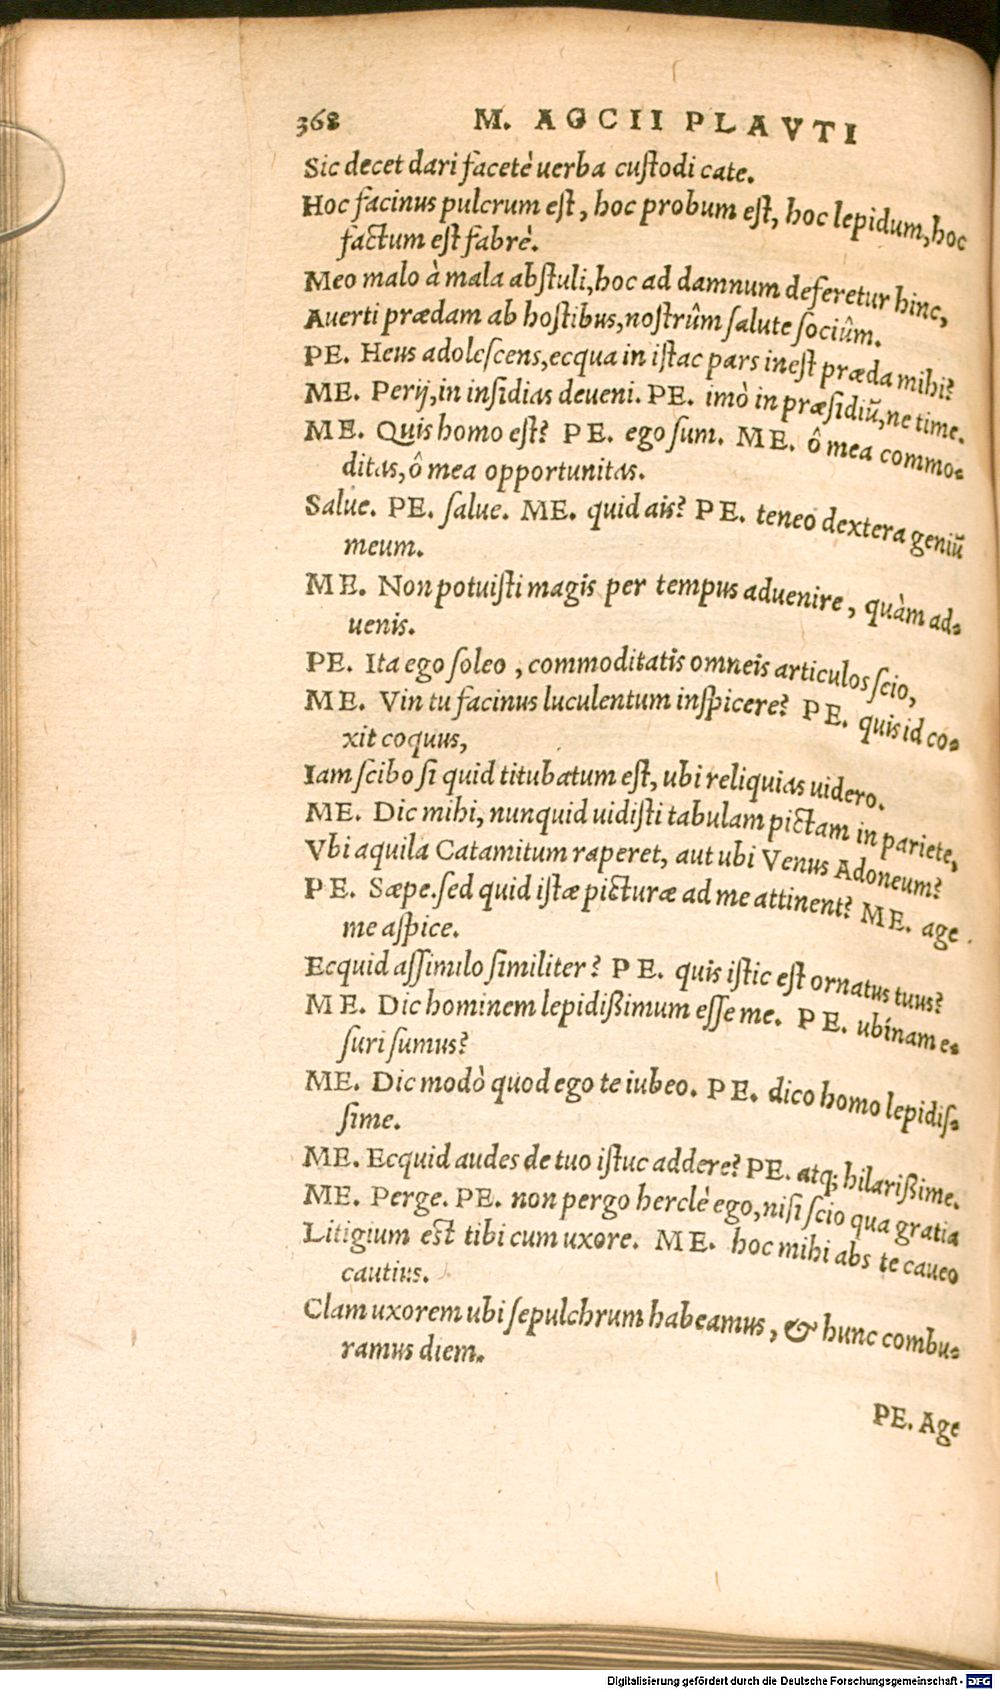 368 M. AGCII PLAVTI
Sic decet dari facetè uerba custodi cate.
Hoc facinus pulcrum est, hoc probum est, hoc lepidum, hoc
factum est fabrè.
Meo malo à mala abstuli, hoc ad damnum deferetur hinc,
Auerti prædam ab hostibus, nostrûm salute sociûm.
PE. Heus adolescens, ecqua in istac pars inest præda mihi?
ME. Perij, in insidias deueni. PE. imò in præsidiũ, ne time.
ME. Quis homo est? PE. ego sum. ME. ô mea commo-
ditas, ô mea opportunitas.
Salue. PE. salue. ME. quid ais? PE. teneo dextera geniũ
meum.
ME. Non potuisti magis per tempus aduenire, quàm ad-
uenis.
PE. Ita ego soleo, commoditatis omneis articulos scio,
ME. Vin tu facinus luculentum inspicere? PE. quis id co-
xit coquus,
Iam scibo si quid titubatum est, ubi reliquias uidero.
ME. Dic mihi, nunquid uidisti tabulam pictam in pariete,
Vbi aquila Catamitum raperet, aut ubi Venus Adoneum?
PE. Sæpe. sed quid istæ picturæ ad me attinent? ME. age
me aspice.
Ecquid assimulo similiter? PE. quis istic est ornatus tuus?
ME. Dic hominem lepidißimum esse me. PE. ubínam e-
suri sumus?
ME. Dic modò quod ego te iubeo. PE. dico homo lepidis-
sime.
ME. Ecquid audes de tuo istuc addere? PE. atq; hilarißime.
ME. Perge. PE. non pergo herclè ego, nisi scio qua gratia
Litigium est tibi cum uxore. ME. hoc mihi abs te caueo
cautius.
Clam uxorem ubi sepulchrum habeamus, & hunc combu-
ramus diem.
PE. Age
Digitalisierung gefördert durch die Deutsche Forschungsgemeinschaft - DFG